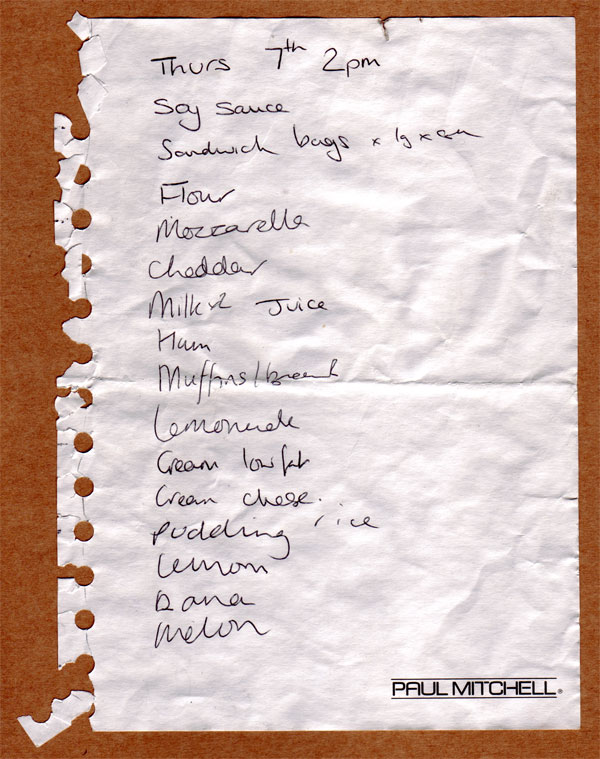 Thurs 7th 2pm
Soy sauce
Sandwich bags x lg x
Flour
Mozzarella
Cheddar
Milk x2 Juice
Ham
Muffins/bread
Lemonade
Cream low fat
Cream chese.
pudding rice
Lemon
Bana
Melon
PAUL MITCHELL®